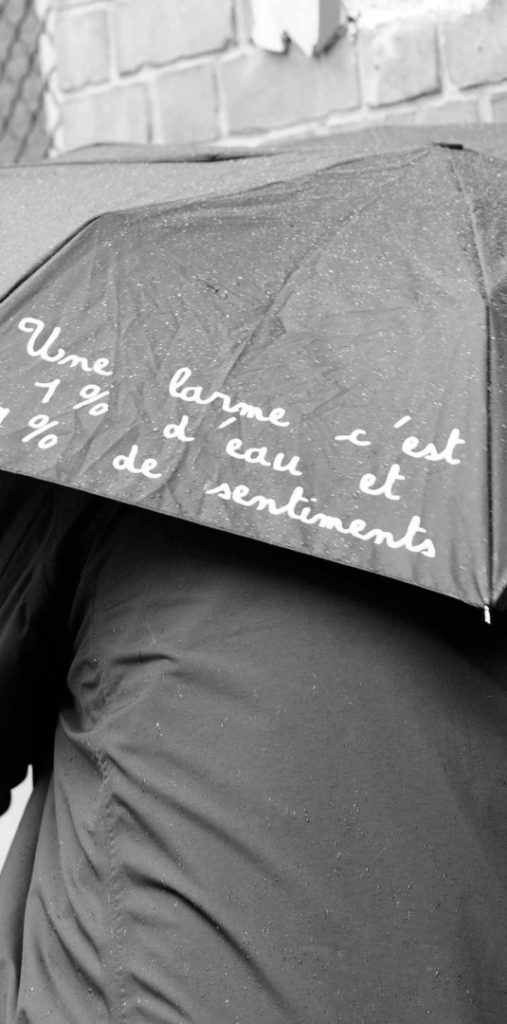 Une larme c'est
1% d'eau et
% de sentiments